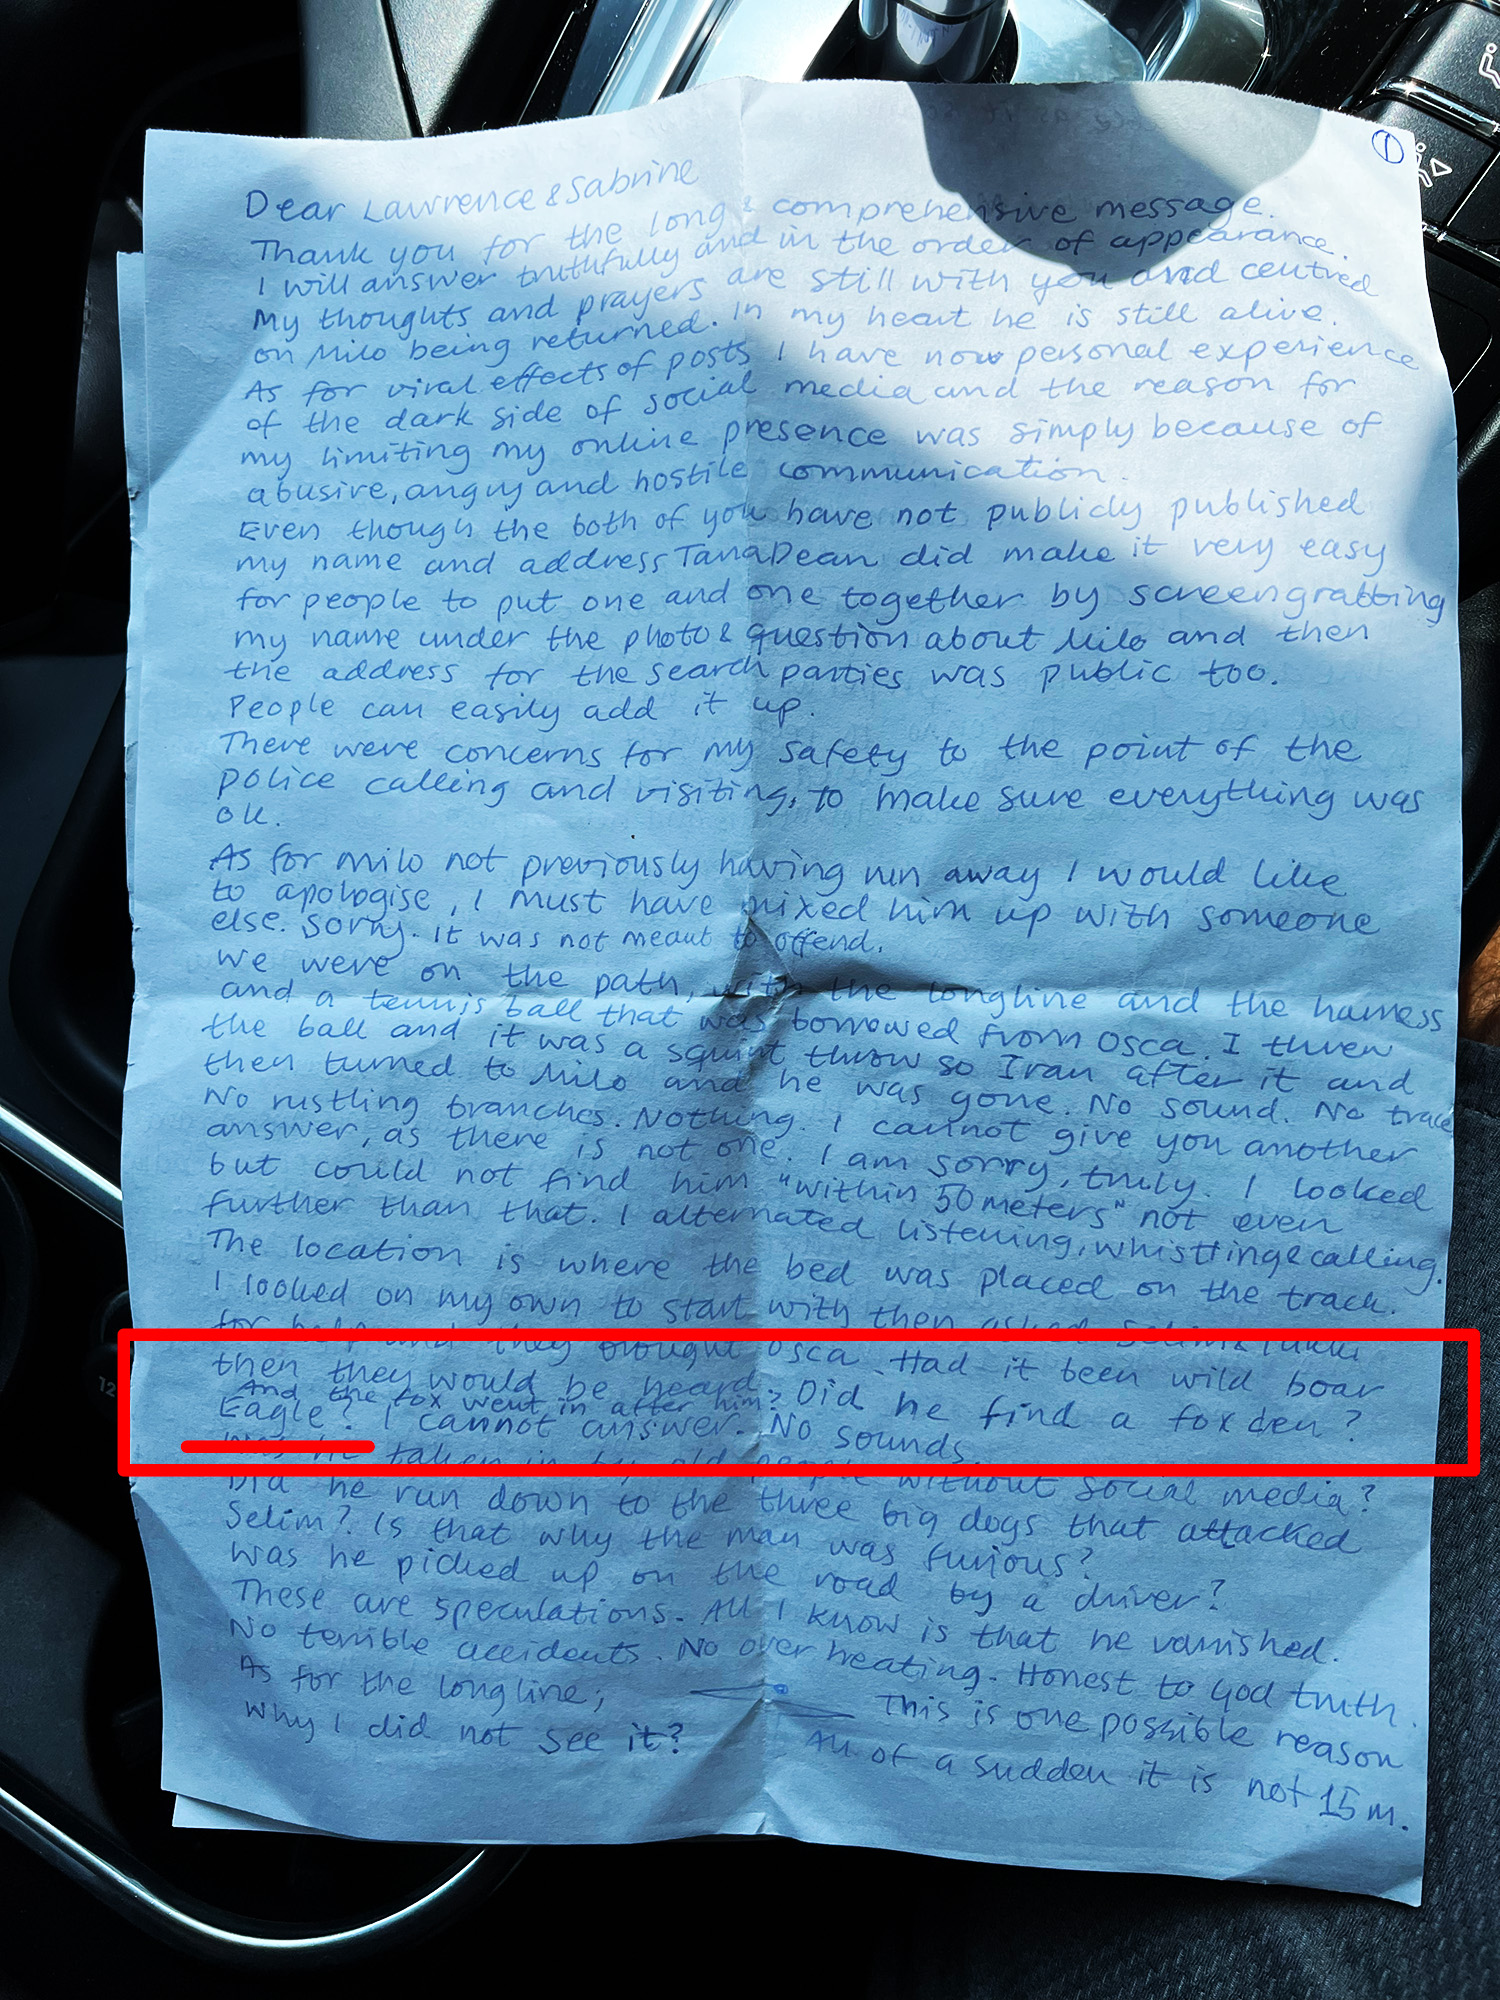 ①
Dear Lawrence & Sabrine
Thank you for the long & comprehensive message.
I will answer truthfully and in the order of appearance.
My thoughts and prayers are still with you and centred
on Milo being returned. In my heart he is still alive.
As for viral effects of posts I have now personal experience
of the dark side of social media and the reason for
my limiting my online presence was simply because of
abusive, angry and hostile communication.
Even though the both of you have not publicly published
my name and address Tana Dean did make it very easy
for people to put one and one together by screengrabbing
my name under the photo & question about Milo and then
the address for the search parties was public too.
People can easily add it up.
There were concerns for my safety to the point of the
police calling and visiting, to make sure everything was
ok.
As for Milo not previously having run away I would like
to apologise, I must have mixed him up with someone
else. Sorry. It was not meant to offend.
We were on the path, with the longline and the harness
and a tennis ball that was borrowed from Osca. I threw
the ball and it was a squint throw so I ran after it and
then turned to Milo and he was gone. No sound. No trace
No rustling branches. Nothing. I cannot give you another
answer, as there is not one. I am sorry, truly. I looked
but could not find him "within 50 meters" not even
further than that. I alternated listening, whistling & calling.
The location is where the bed was placed on the track.
I looked on my own to start with then asked Selim &
for help and they brought Osca. Had it been wild boar
then they would be heard. Did he find a fox den?
And the fox went in after him?
Eagle? I cannot answer. No sounds.
Was he taken in by old people without social media?
Did he run down to the three big dogs that attacked
Selim? Is that why the man was furious?
Was he picked up on the road by a driver?
These are speculations. All I know is that he vanished.
No terrible accidents. No over heating. Honest to God truth.
As for the longline; This is one possible reason
Why I did not see it? All of a sudden it is not 15 m.